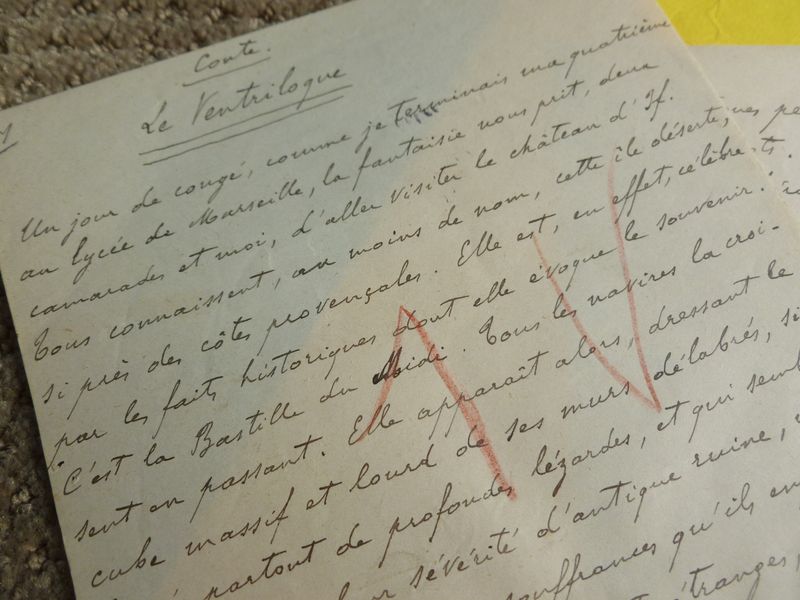 Conte.
Le Ventriloque
Un jour de congé, comme je terminais ma quatrième
au lycée de Marseille, la fantaisie nous prit, deux
camarades et moi, d'aller visiter le château d'If.
Tous connaissent, au moins de nom, cette île déserte,
si près des côtes provençales. Elle est, en effet, célèbre
par les faits historiques dont elle évoque le souvenir :
C'est la Bastille du Midi. Tous les navires la croi-
sent en passant. Elle apparaît alors, dressant le
cube massif et lourd de ses murs délabrés,
partout de profondes lézardes, et qui
sévérité d'antique ruine,
souffrances qu'ils
étranges,